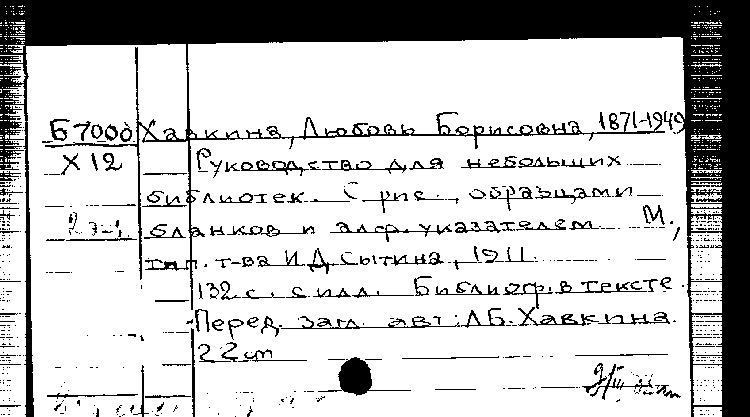 Б7000 Хавкина, Любовь Борисовна, 1871-1949
Х12 Руководство для небольших
библиотек. С рис., образцами
2 э-з. бланков и алф. указателем М.,
тип. т-ва И.Д. Сытина, 1911.
132 с. с илл. Библиогр. в тексте.
Перед загл. авт: Л.Б. Хавкина
22 см